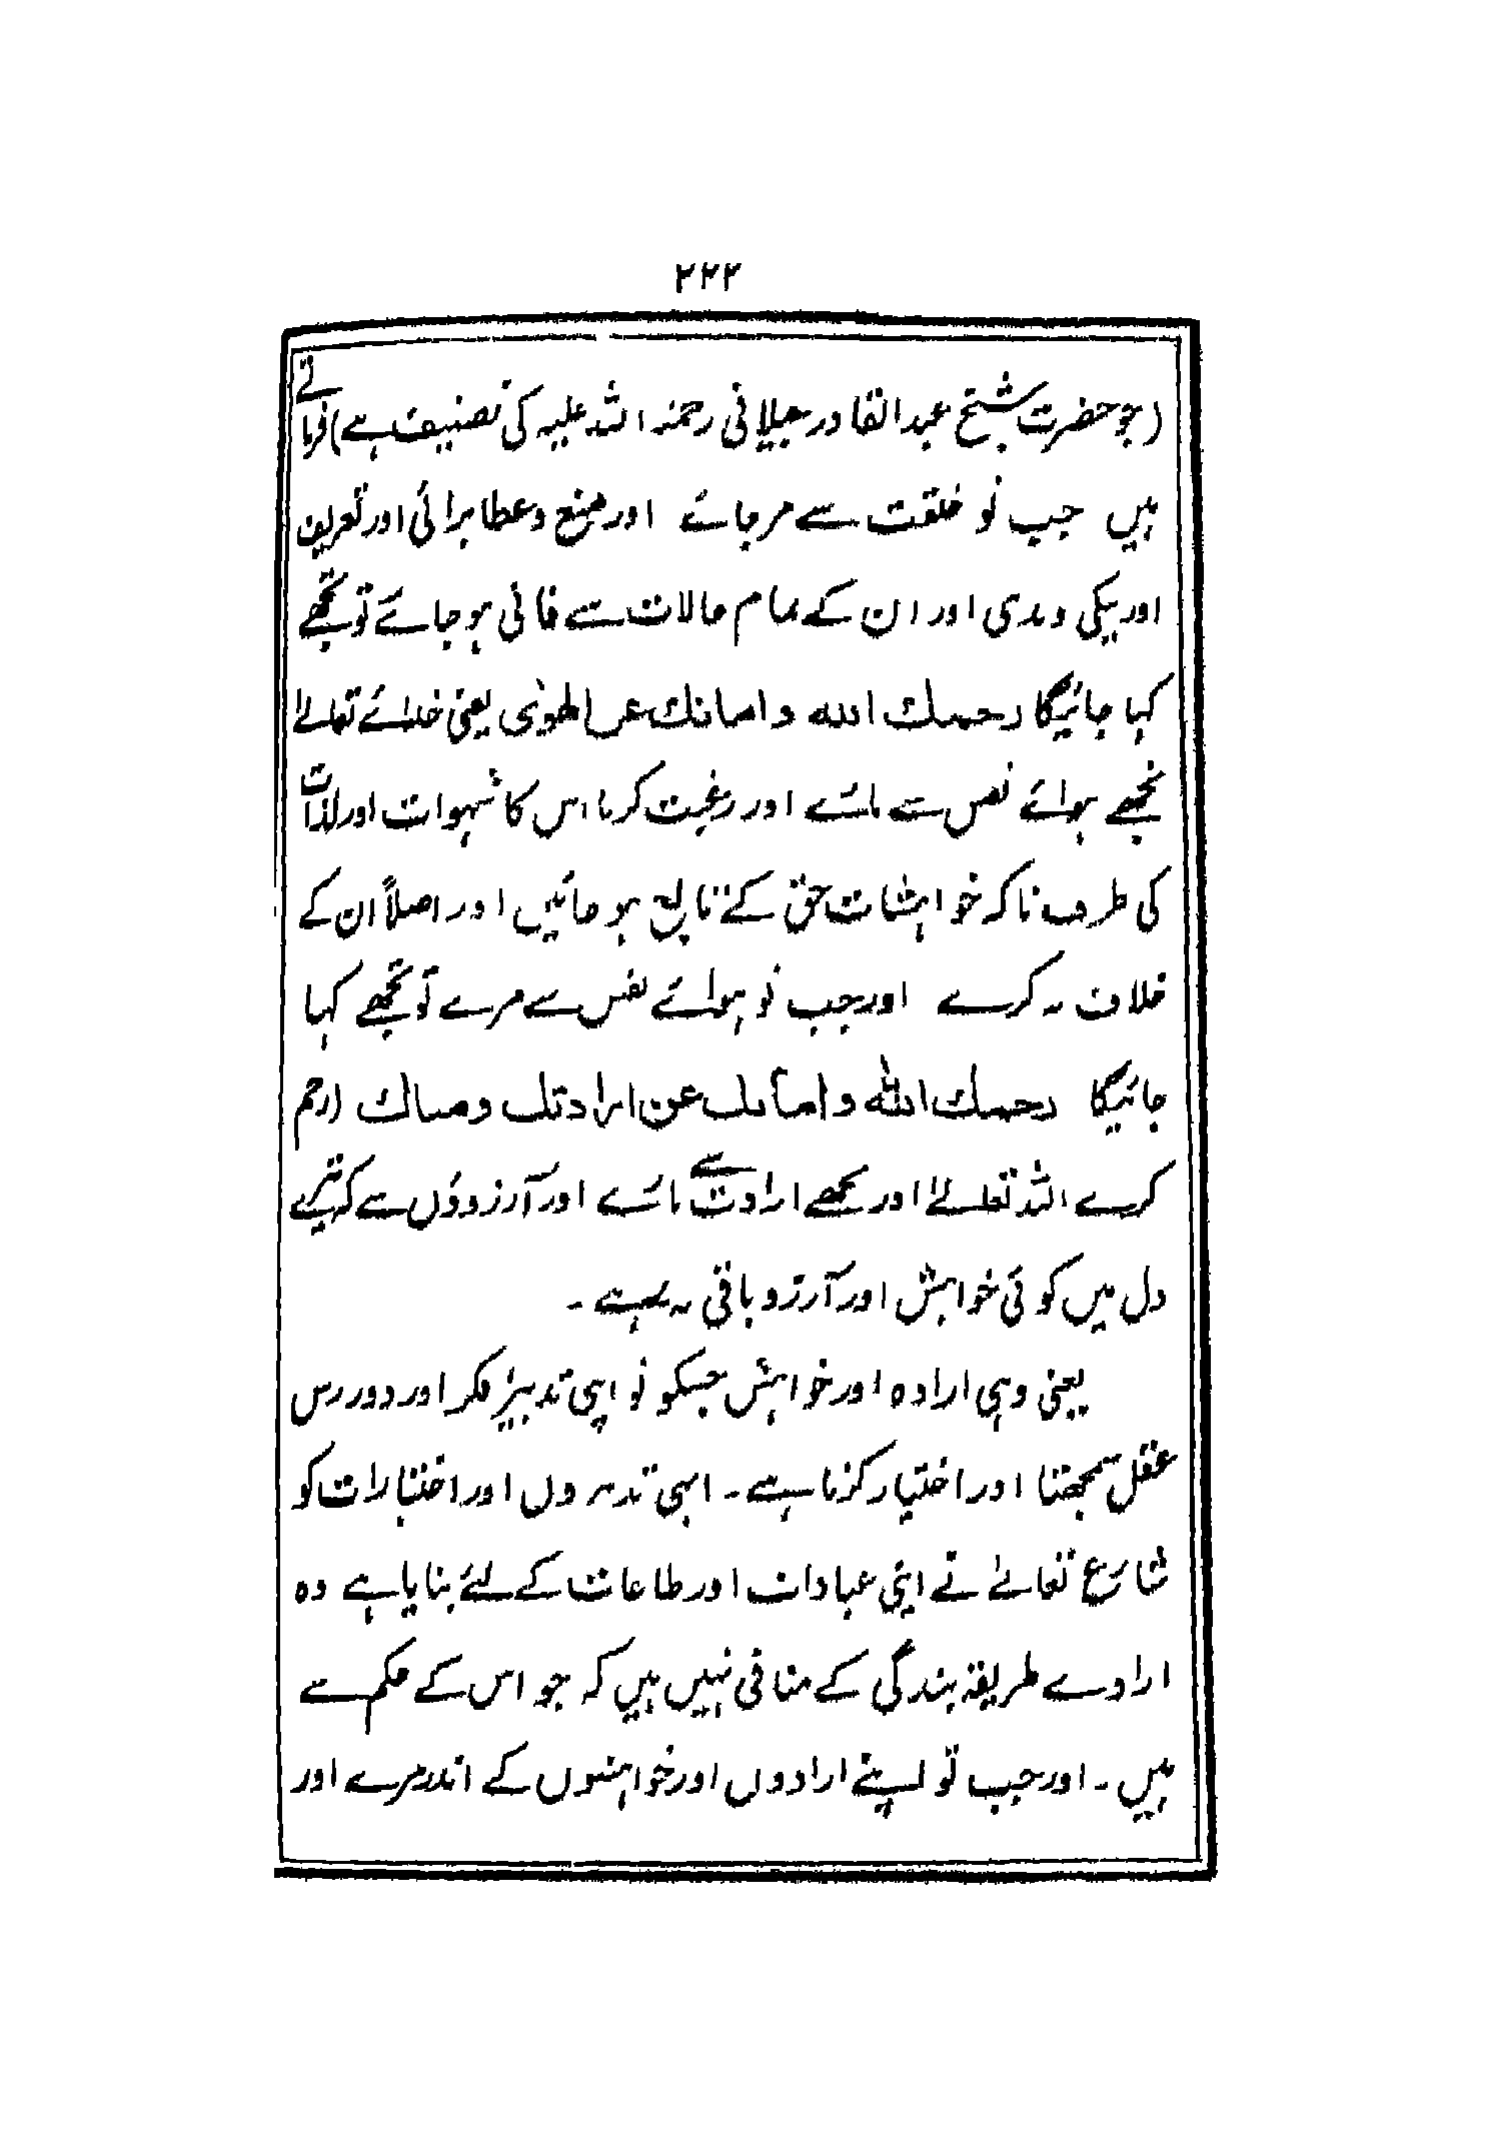 ۲۲۲
(جو حضرت شیخ عبدالقادر جیلانی رحمۃ اللہ علیہ کی تصنیف ہے) فرماتے
ہیں جب تو خلقت سے مرجائے اور منع و عطا برائی اور تعریف
اور نیکی و بدی اور ان کے تمام حالات سے فانی ہو جائے تو تجھے
کہا جائیگا رحمك الله و اماتك عن الهوٰى یعنی خدائے تعالےٰ
تجھے ہوائے نفس سے مارے اور رغبت کرنا اس کا شہوات اور لذات
کی طرف تاکہ خواہشات حق کے تابع ہو جائیں اور اصلاً ان کے
خلاف نہ کرے اور جب تو ہوائے نفس سے مرے تو تجھے کہا
جائیگا رحمك الله و اماتك عن ارادتك ومناك (رحم
کرے اللہ تعالےٰ اور تجھے ارادت سے مارے اور آرزووُں سے کہ تیرے
دل میں کوئی خواہش اور آرزو باقی نہ رہے ۔
یعنی وہی ارادہ اور خواہش جسکو تو اپنی تدبیر فکر اور دوررس
عقل سمجھتا اور اختیار کرتا ہے ۔ ایسی تدبیروں اور اختیارات کو
شارع تعالےٰ نے اپنی عبادات اور طاعات کے لئے بنایا ہے وہ
ارادے طریقۂ بندگی کے منافی نہیں ہیں کہ جو اس کے حکم سے
ہیں ۔ اور جب تو اپنے ارادوں اور خواہشوں کے اندر مرے اور